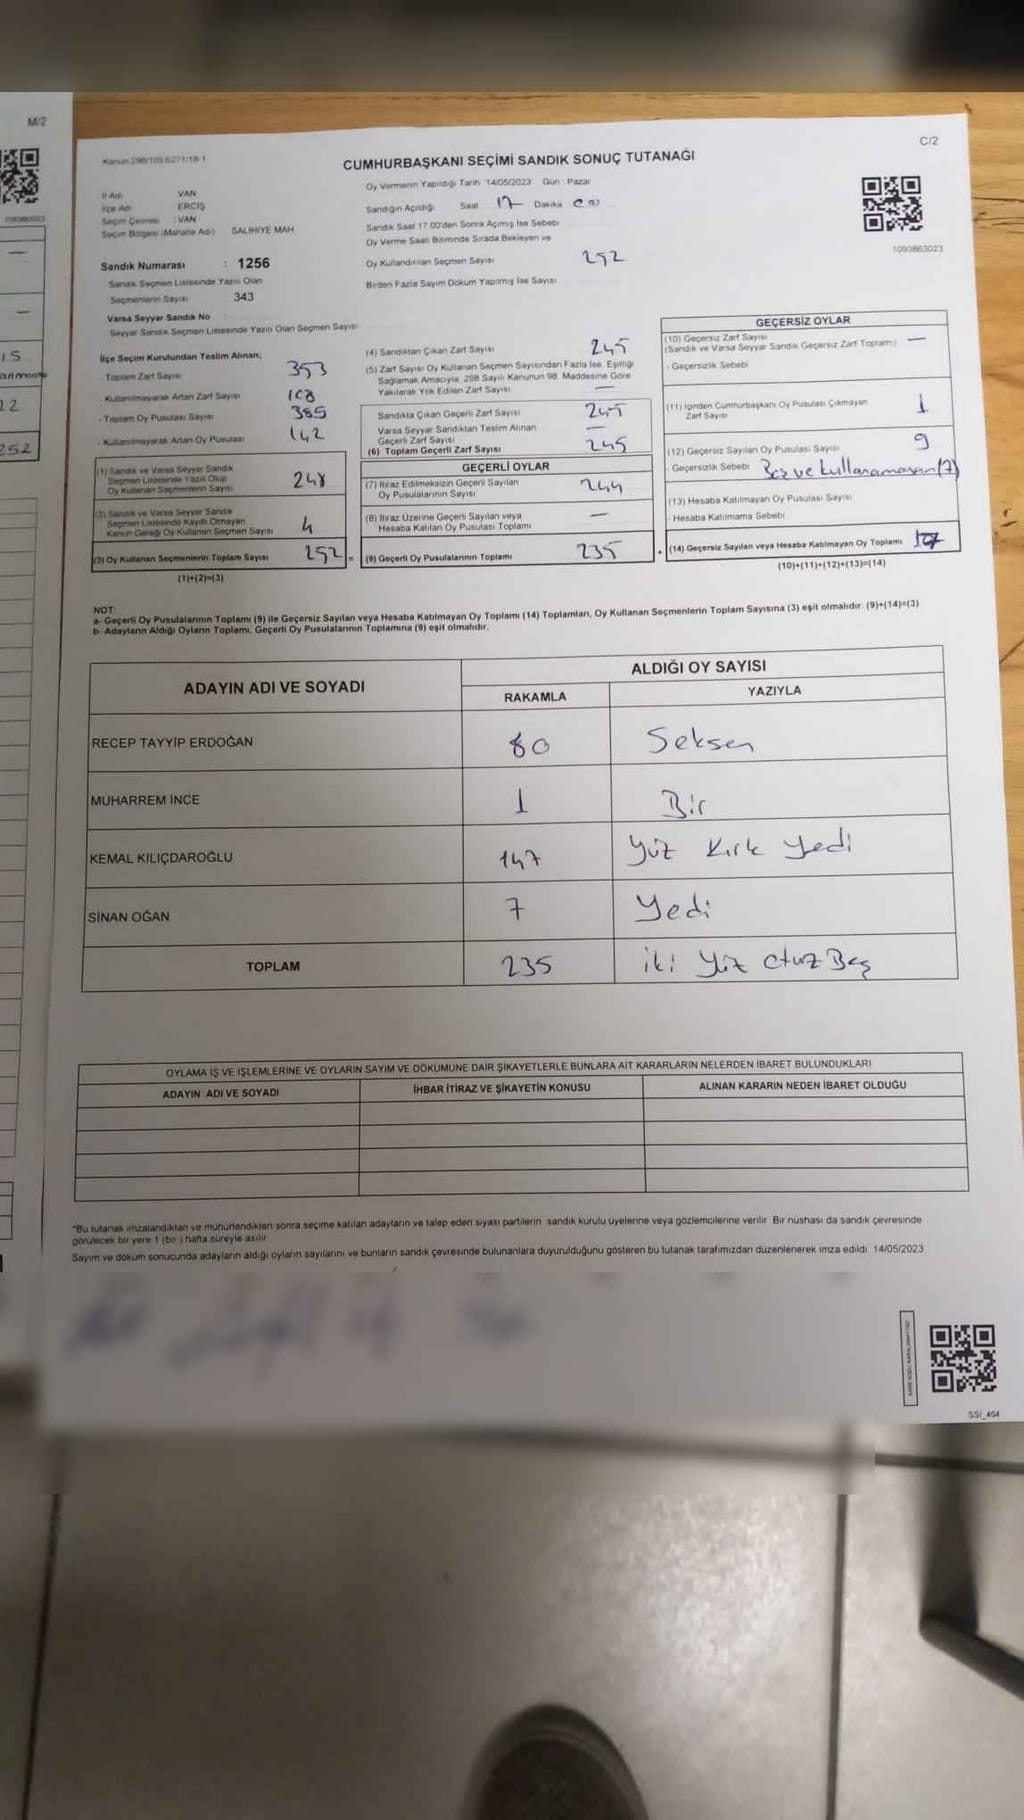 M/2
C/2
Kanun 298/105 6271/18-1
CUMHURBAŞKANI SEÇİMİ SANDIK SONUÇ TUTANAĞI
İl Adı VAN
İlçe Adı ERCİŞ
Seçim Çevresi : VAN
Seçim Bölgesi (Mahalle Adı) SALİHİYE MAH
Sandık Numarası : 1256
Sandık Seçmen Listesinde Yazılı Olan
Seçmenlerin Sayısı 343
Varsa Seyyar Sandık No
Seyyar Sandık Seçmen Listesinde Yazılı Olan Seçmen Sayısı
Oy Vermenin Yapıldığı Tarih :14/05/2023 Gün : Pazar
Sandığın Açıldığı Saat 17 Dakika
Sandık Saat 17:00'den Sonra Açımış İse Sebebi
Oy Verme Saati Bitiminde Sırada Bekleyen ve
Oy Kullandırılan Seçmen Sayısı 252
Birden Fazla Sayım Döküm Yapılmış İse Sayısı
1093863023
İlçe Seçim Kurulundan Teslim Alınan;
- Toplam Zarf Sayısı 353
- Kullanılmayarak Artan Zarf Sayısı 108
- Toplam Oy Pusulası Sayısı 385
- Kullanılmayarak Artan Oy Pusulası 142
(1) Sandık ve Varsa Seyyar Sandık
Seçmen Listesinde Yazılı Olup
Oy Kullanan Seçmenlerin Sayısı 248
(2) Sandık ve Varsa Seyyar Sandık
Seçmen Listesinde Kayıtlı Olmayan
Kanun Gereği Oy Kullanan Seçmen Sayısı 4
(3) Oy Kullanan Seçmenlerin Toplam Sayısı 252 =
(1)+(2)=(3)
(4) Sandıktan Çıkan Zarf Sayısı 245
(5) Zarf Sayısı Oy Kullanan Seçmen Sayısından Fazla İse, Eşitliği
Sağlamak Amacıyla, 298 Sayılı Kanunun 98. Maddesine Göre
Yakılarak Yok Edilen Zarf Sayısı —
Sandıkta Çıkan Geçerli Zarf Sayısı 245
Varsa Seyyar Sandıktan Teslim Alınan
Geçerli Zarf Sayısı —
(6) Toplam Geçerli Zarf Sayısı 245
GEÇERLİ OYLAR
(7) İtiraz Edilmeksizin Geçerli Sayılan
Oy Pusulalarının Sayısı 244
(8) İtiraz Üzerine Geçerli Sayılan veya
Hesaba Katılan Oy Pusulası Toplamı —
(9) Geçerli Oy Pusulalarının Toplamı 235
GEÇERSİZ OYLAR
(10) Geçersiz Zarf Sayısı
(Sandık ve Varsa Seyyar Sandık Geçersiz Zarf Toplamı) —
- Geçersizlik Sebebi
(11) İçinden Cumhurbaşkanı Oy Pusulası Çıkmayan
Zarf Sayısı 1
(12) Geçersiz Sayılan Oy Pusulası Sayısı 9
- Geçersizlik Sebebi Boş ve kullanamayan (7)
(13) Hesaba Katılmayan Oy Pusulası Sayısı
- Hesaba Katılmama Sebebi
(14) Geçersiz Sayılan veya Hesaba Katılmayan Oy Toplamı
(10)+(11)+(12)+(13)=(14)
NOT:
a- Geçerli Oy Pusulalarının Toplamı (9) ile Geçersiz Sayılan veya Hesaba Katılmayan Oy Toplamı (14) Toplamları, Oy Kullanan Seçmenlerin Toplam Sayısına (3) eşit olmalıdır. (9)+(14)=(3)
b- Adayların Aldığı Oyların Toplamı, Geçerli Oy Pusulalarının Toplamına (9) eşit olmalıdır.
ADAYIN ADI VE SOYADI ALDIĞI OY SAYISI
RAKAMLA YAZIYLA
RECEP TAYYİP ERDOĞAN 80 Seksen
MUHARREM İNCE 1 Bir
KEMAL KILIÇDAROĞLU 147 Yüz Kırk Yedi
SİNAN OĞAN 7 Yedi
TOPLAM 235 iki Yüz otuz Beş
OYLAMA İŞ VE İŞLEMLERİNE VE OYLARIN SAYIM VE DÖKÜMÜNE DAİR ŞİKAYETLERLE BUNLARA AİT KARARLARIN NELERDEN İBARET BULUNDUKLARI
ADAYIN ADI VE SOYADI İHBAR İTİRAZ VE ŞİKAYETİN KONUSU ALINAN KARARIN NEDEN İBARET OLDUĞU
*Bu tutanak imzalandıktan ve mühürlendikten sonra seçime katılan adayların ve talep eden siyasi partilerin sandık kurulu üyelerine veya gözlemcilerine verilir. Bir nüshası da sandık çevresinde
görülecek bir yere 1 (bir) hafta süreyle asılır.
Sayım ve döküm sonucunda adayların aldığı oyların sayılarını ve bunların sandık çevresinde bulunanlara duyurulduğunu gösteren bu tutanak tarafımızdan düzenlenerek imza edildi. 14/05/2023
SSİ_404